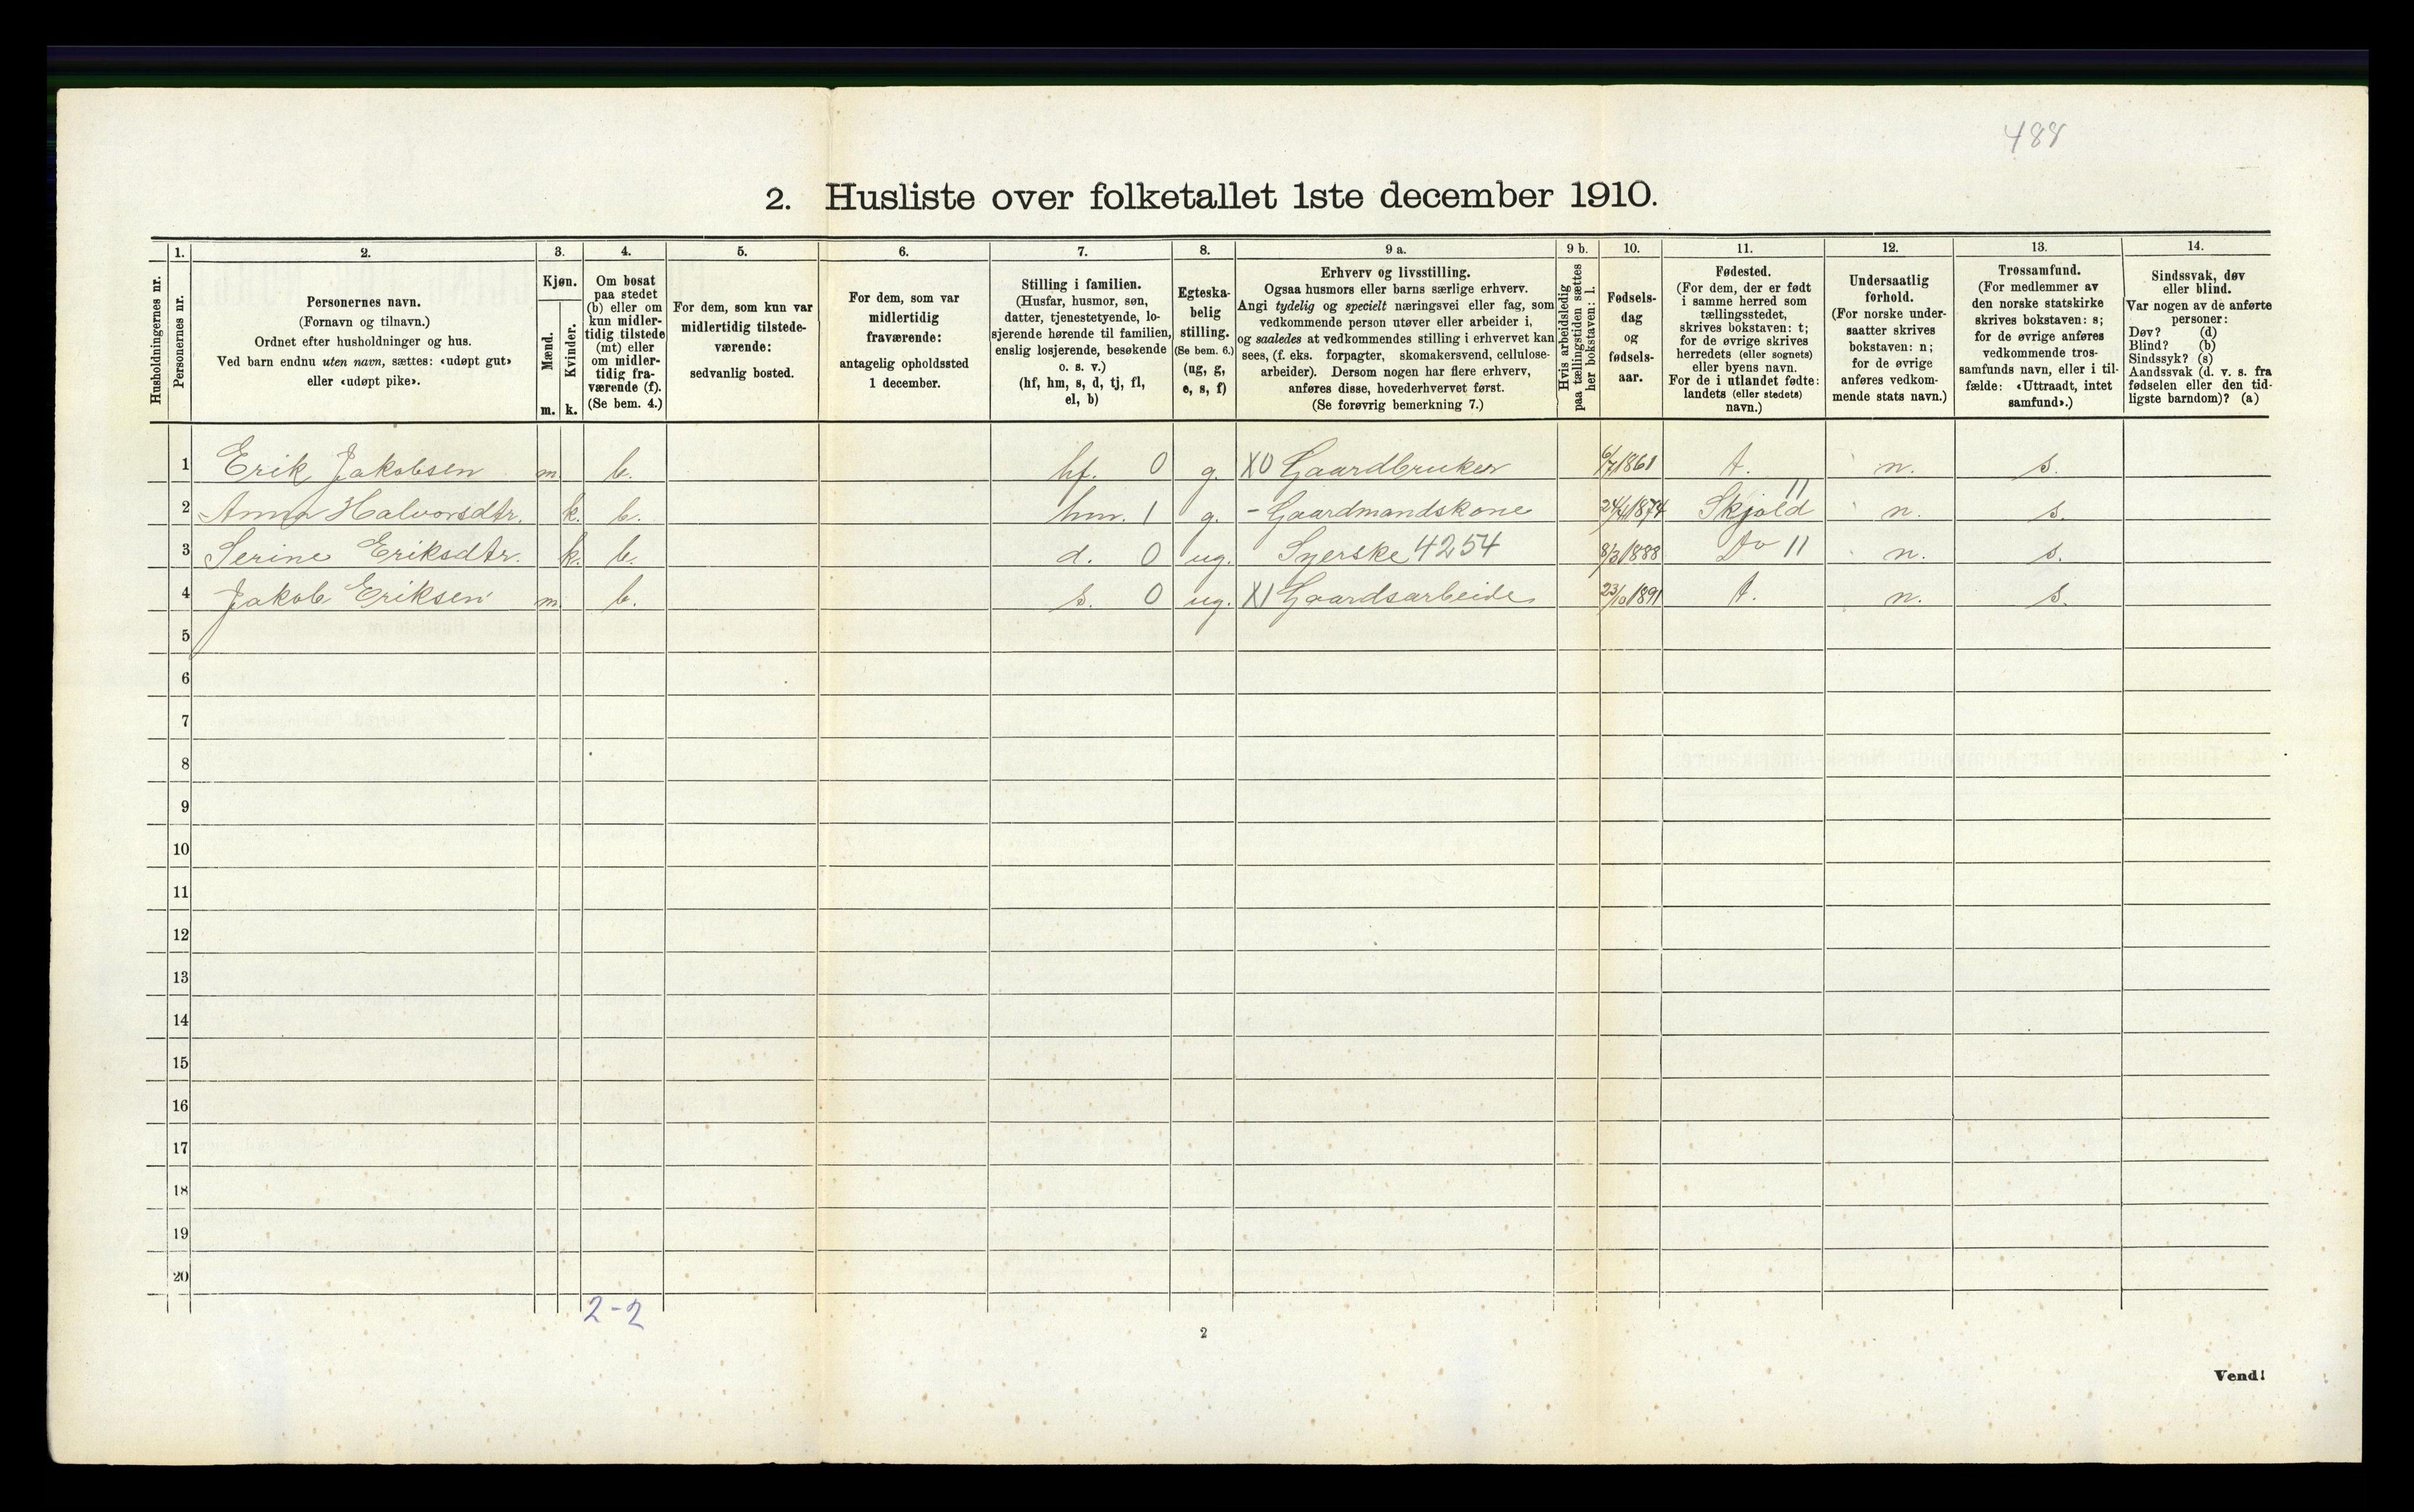 488
2. Husliste over folketallet 1ste december 1910.
Husholdningernes nr.
1.
Personernes nr.
2.
Personernes navn.
(Fornavn og tilnavn.)
Ordnet efter husholdninger og hus.
Ved barn endnu uten navn, sættes: «udøpt gut»
eller «udøpt pike».
3.
Kjøn.
Mænd.
Kvinder.
m. k.
4.
Om bosat
paa stedet
(b) eller om
kun midler-
tidig tilstede
(mt) eller
om midler-
tidig fra-
værende (f).
(Se bem. 4.)
5.
For dem, som kun var
midlertidig tilstede-
værende:
sedvanlig bosted.
6.
For dem, som var
midlertidig
fraværende:
antagelig opholdssted
1 december.
7.
Stilling i familien.
(Husfar, husmor, søn,
datter, tjenestetyende, lo-
sjerende hørende til familien,
enslig losjerende, besøkende
o. s. v.)
(hf, hm, s, d, tj, fl,
el, b)
8.
Egteska-
belig
stilling.
(Se bem. 6.)
(ug, g,
e, s, f)
9 a.
Erhverv og livsstilling.
Ogsaa husmors eller barns særlige erhverv.
Angi tydelig og specielt næringsvei eller fag, som
vedkommende person utøver eller arbeider i,
og saaledes at vedkommendes stilling i erhvervet kan
sees, (f. eks. forpagter, skomakersvend, cellulose-
arbeider). Dersom nogen har flere erhverv,
anføres disse, hovederhvervet først.
(Se forøvrig bemerkning 7.)
9 b.
Hvis arbeidsledig
paa tællingstiden sættes
her bokstaven: l.
10.
Fødsels-
dag
og
fødsels-
aar.
11.
Fødested.
(For dem, der er født
i samme herred som
tællingsstedet,
skrives bokstaven: t;
for de øvrige skrives
herredets (eller sognets)
eller byens navn.
For de i utlandet fødte:
landets (eller stedets)
navn.)
12.
Undersaatlig
forhold.
(For norske under-
saatter skrives
bokstaven: n;
for de øvrige
anføres vedkom-
mende stats navn.)
13.
Trossamfund.
(For medlemmer av
den norske statskirke
skrives bokstaven: s;
for de øvrige anføres
vedkommende tros-
samfunds navn, eller i til-
fælde: «Uttraadt, intet
samfund».)
14.
Sindssvak, døv
eller blind.
Var nogen av de anførte
personer:
Døv? (d)
Blind? (b)
Sindssyk? (s)
Aandssvak (d. v. s. fra
fødselen eller den tid-
ligste barndom)? (a)
1 Erik Jakobsen m b. hf. 0 g. X0 Gaardbruker 6/7 1861 t. n. s.
2 Anna Halvorsdtr. k. b. hm. 1 g. - Gaardmandskone 24/4 1874 Skjold 11 n. s.
3 Serine Eriksdtr. k. b. d. 0 ug. Syerske 4254 8/3 1888 Do 11 n. s.
4 Jakob Eriksen m b. s. 0 ug. X1 Gaardsarbeide 23/10 1891 t. n. s.
5
6
7
8
9
10
11
12
13
14
15
16
17
18
19
20
2-2
2
Vend!